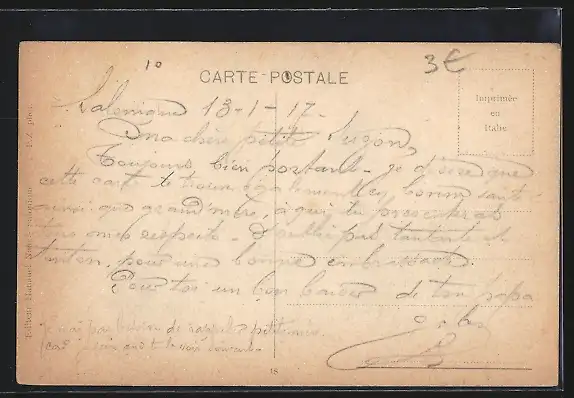 10
3€
CARTE POSTALE
Imprimée
en
Italie
Salonique 13-1-17-
Ma chère petite Suzon,
Toujours bien portant - je désire que
cette carte te trouve également en bonne santé
ainsi que grand'mère, à qui tu présenteras
tous mes respects - N'oublie pas tantante et
tonton, pour une bonne embrassade.
Pour toi un bon baiser de ton papa
je n'ai pas besoin de rappeler petite mère
car je suis
18